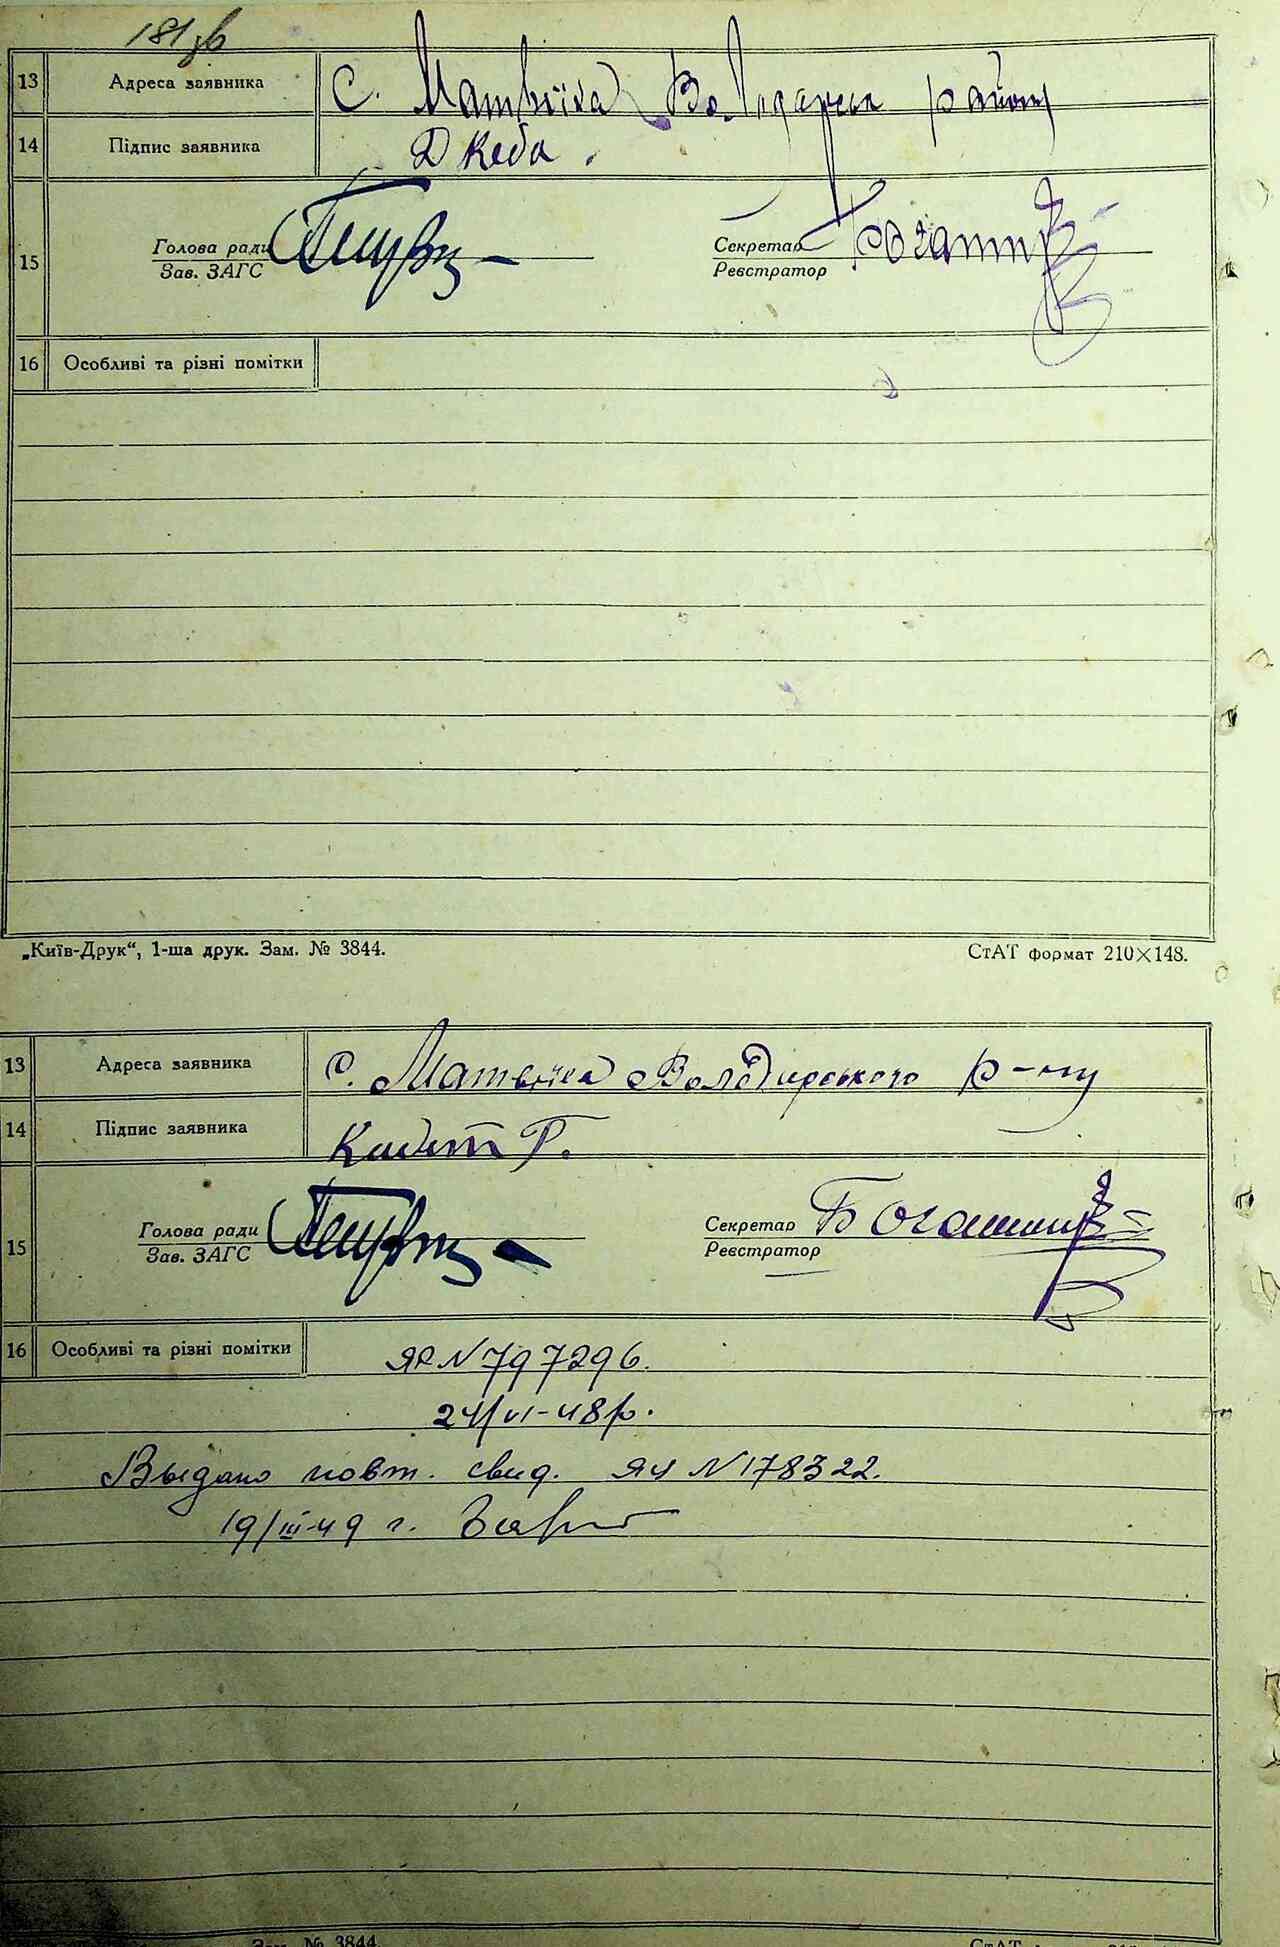 181зв
13 Адреса заявника с. Матвіїха Володарськ району
14 Підпис заявника Д Кеба.
15 Голова ради Секретар Богатир
Зав. ЗАГС Реєстратор
16 Особливі та різні помітки
„Київ-Друк“, 1-ша друк. Зам. № 3844. СтАТ формат 210×148.
13 Адреса заявника с. Матвіїха Володарського р-ну
14 Підпис заявника Г.
15 Голова ради Секретар Богатир
Зав. ЗАГС Реєстратор
16 Особливі та різні помітки ЯР N 797296.
24/VI-48 р.
Выдано повт. свид. ЯЧ N 178322.
19/III-49 г.
Зам. № 3844. СтАТ